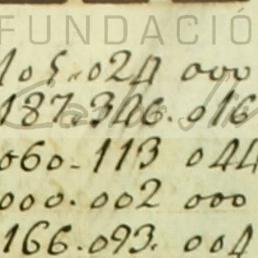 FUNDACIÓ
105.024 000
187.346.016
060.113 044
000.002 000
166.093. 004